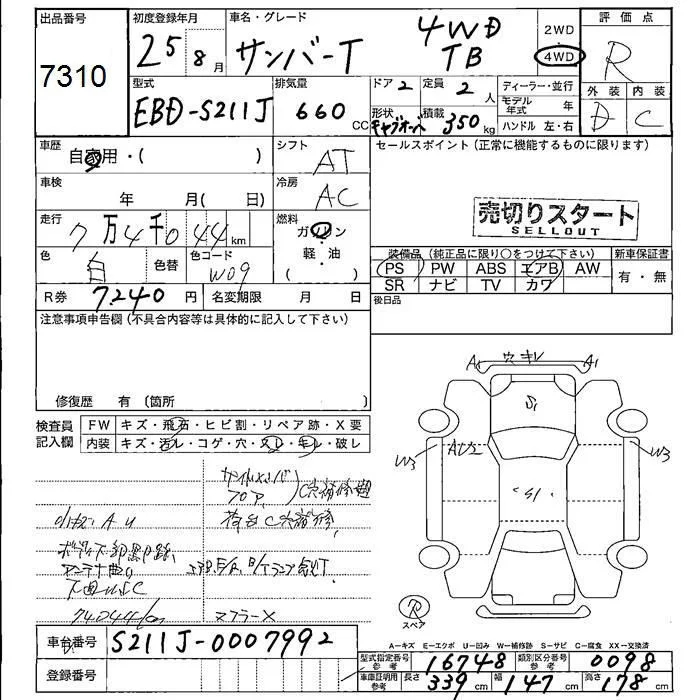 出品番号 7310
初度登録年月 25 8月
車名・グレード サンバーT 4WD TB
2WD 4WD
評価点 R
外装 D 内装 C
型式 EBD-S211J
排気量 660 CC
ドア 2 定員 2人
形状 積載 350 kg
ディーラー・並行
モデル年式 年
ハンドル 左・右
車歴 自家用・( )
シフト AT
車検 年 月( 日)
冷房 AC
走行 7万4千044km
燃料 ガソリン 軽・油 ( )
色 白 色替 色コード W09
R券 7240円 名変期限 月 日
セールスポイント(正常に機能するものに限ります)
売切りスタート
SELLOUT
装備品(純正品に限り○をつけて下さい) 新車保証書
PS PW ABS エアB AW 有・無
SR ナビ TV カワ
後日品
注意事項申告欄(不具合内容等は具体的に記入して下さい)
修復歴 有 〔箇所 〕
検査員記入欄
FW キズ・飛石・ヒビ割・リペア跡・X要
内装 キズ・汚レ・コゲ・穴・スレ・キレ・破し
フロア
小キズ・A U
荷台C穴補修
アンテナ曲り
下回りSC
74044km
マフラーX
A1 ワキレ A1
S1
W3 AU2 W3
S1
R スペア
A=キズ E=エクボ U=凹み W=補修跡 S=サビ C=腐食 XX=交換済
車台番号 S211J-0007992
登録番号
型式指定番号参考 16748 類別区分番号参考 0098
車庫証明用参考 長さ 339cm 幅 147cm 高さ 178cm